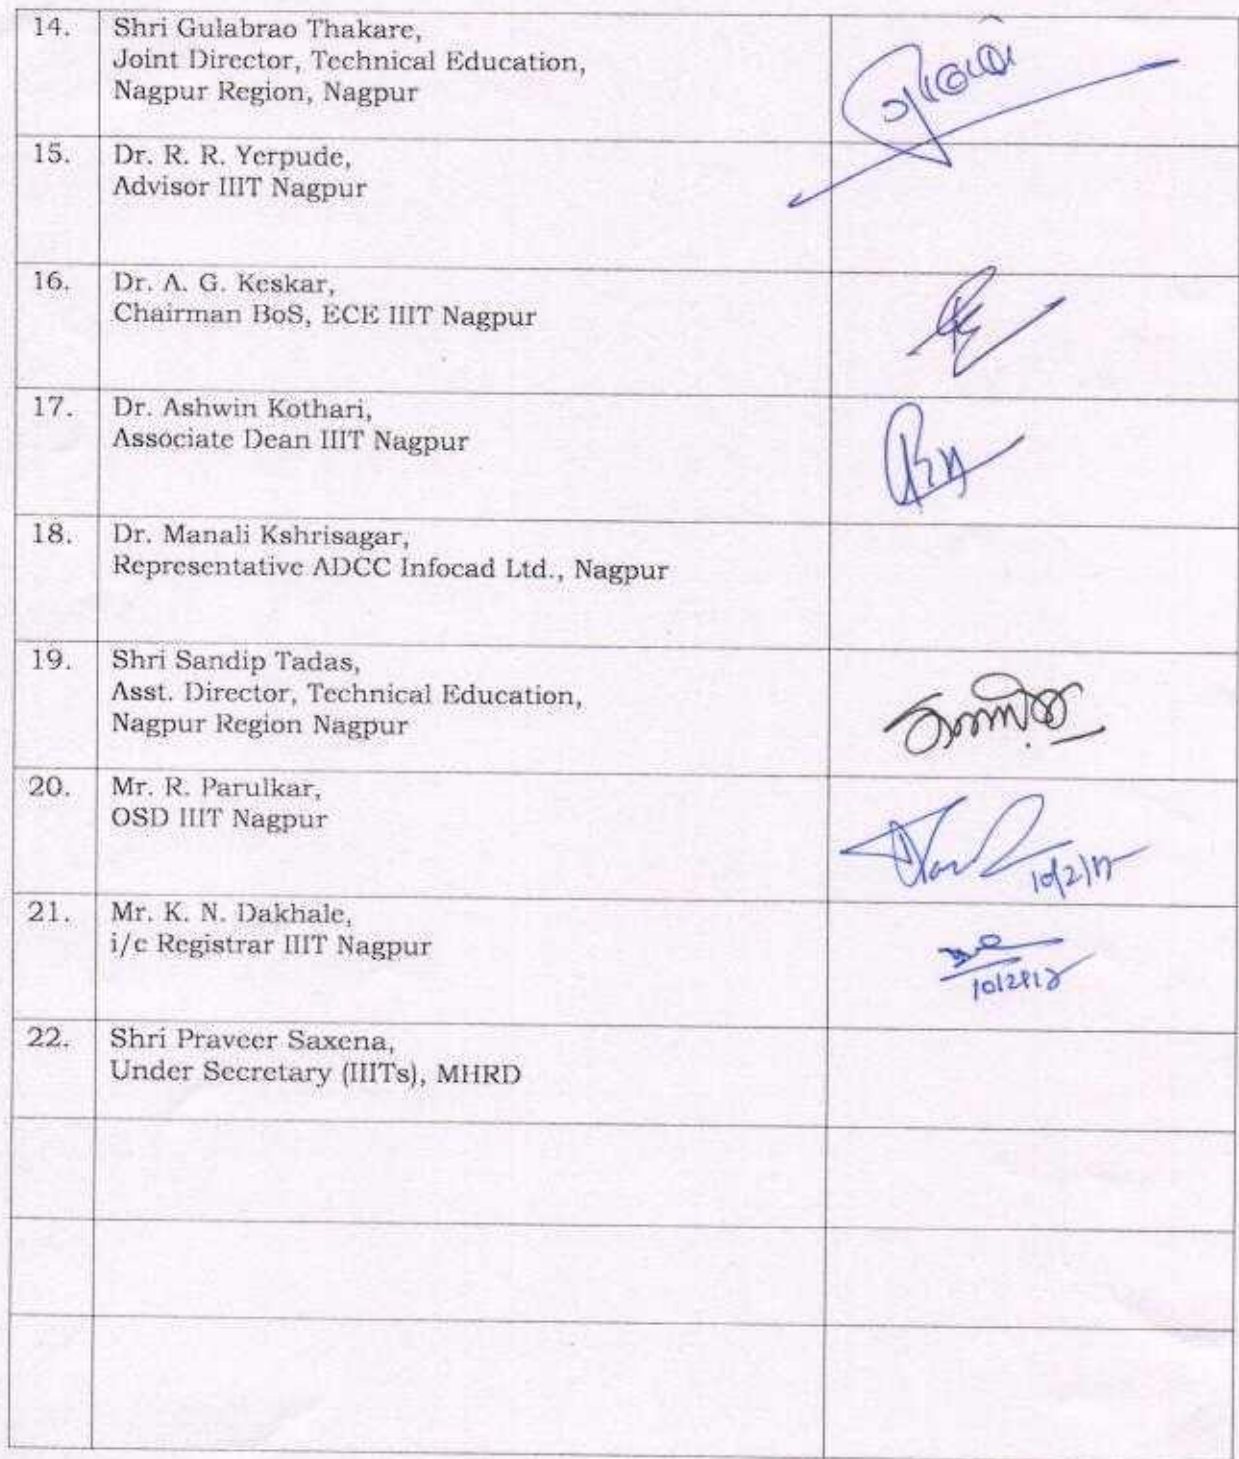 14.
Shri Gulabrao Thakare,
Joint Director, Technical Education,
Nagpur Region, Nagpur
15.
Dr. R. R. Yerpude,
Advisor IIIT Nagpur
16.
Dr. A. G. Keskar,
Chairman BoS, ECE IIIT Nagpur
17.
Dr. Ashwin Kothari,
Associate Dean IIIT Nagpur
18.
Dr. Manali Kshrisagar,
Representative ADCC Infocad Ltd., Nagpur
19.
Shri Sandip Tadas,
Asst. Director, Technical Education,
Nagpur Region Nagpur
20.
Mr. R. Parulkar,
OSD IIIT Nagpur
10/2/17
21.
Mr. K. N. Dakhale,
i/c Registrar IIIT Nagpur
22.
Shri Praveer Saxena,
Under Secretary (IIITs), MHRD